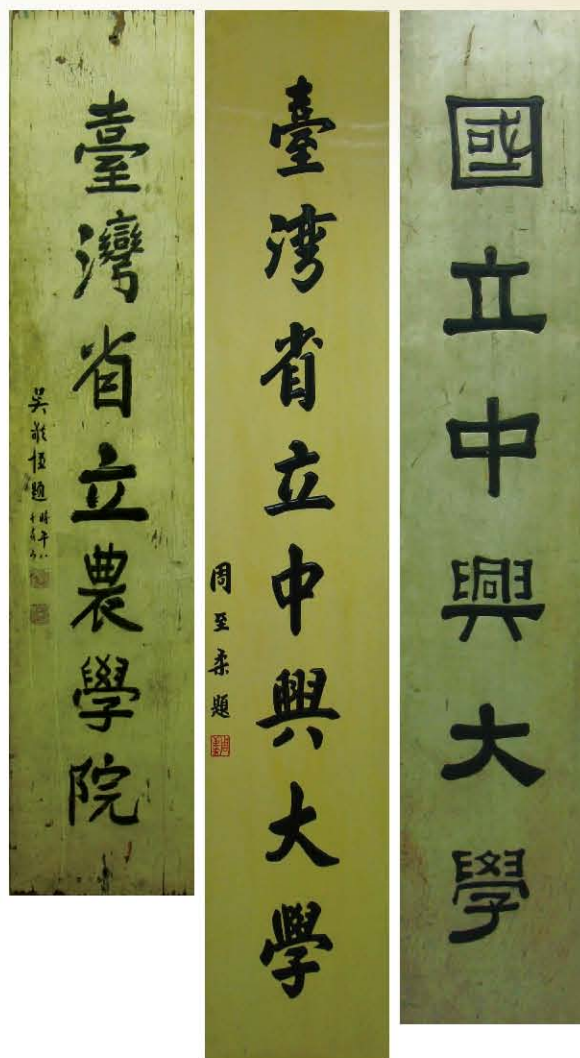 臺灣省立農學院
吳敬恆題 時年八十有八
臺灣省立中興大學
周至柔題
國立中興大學